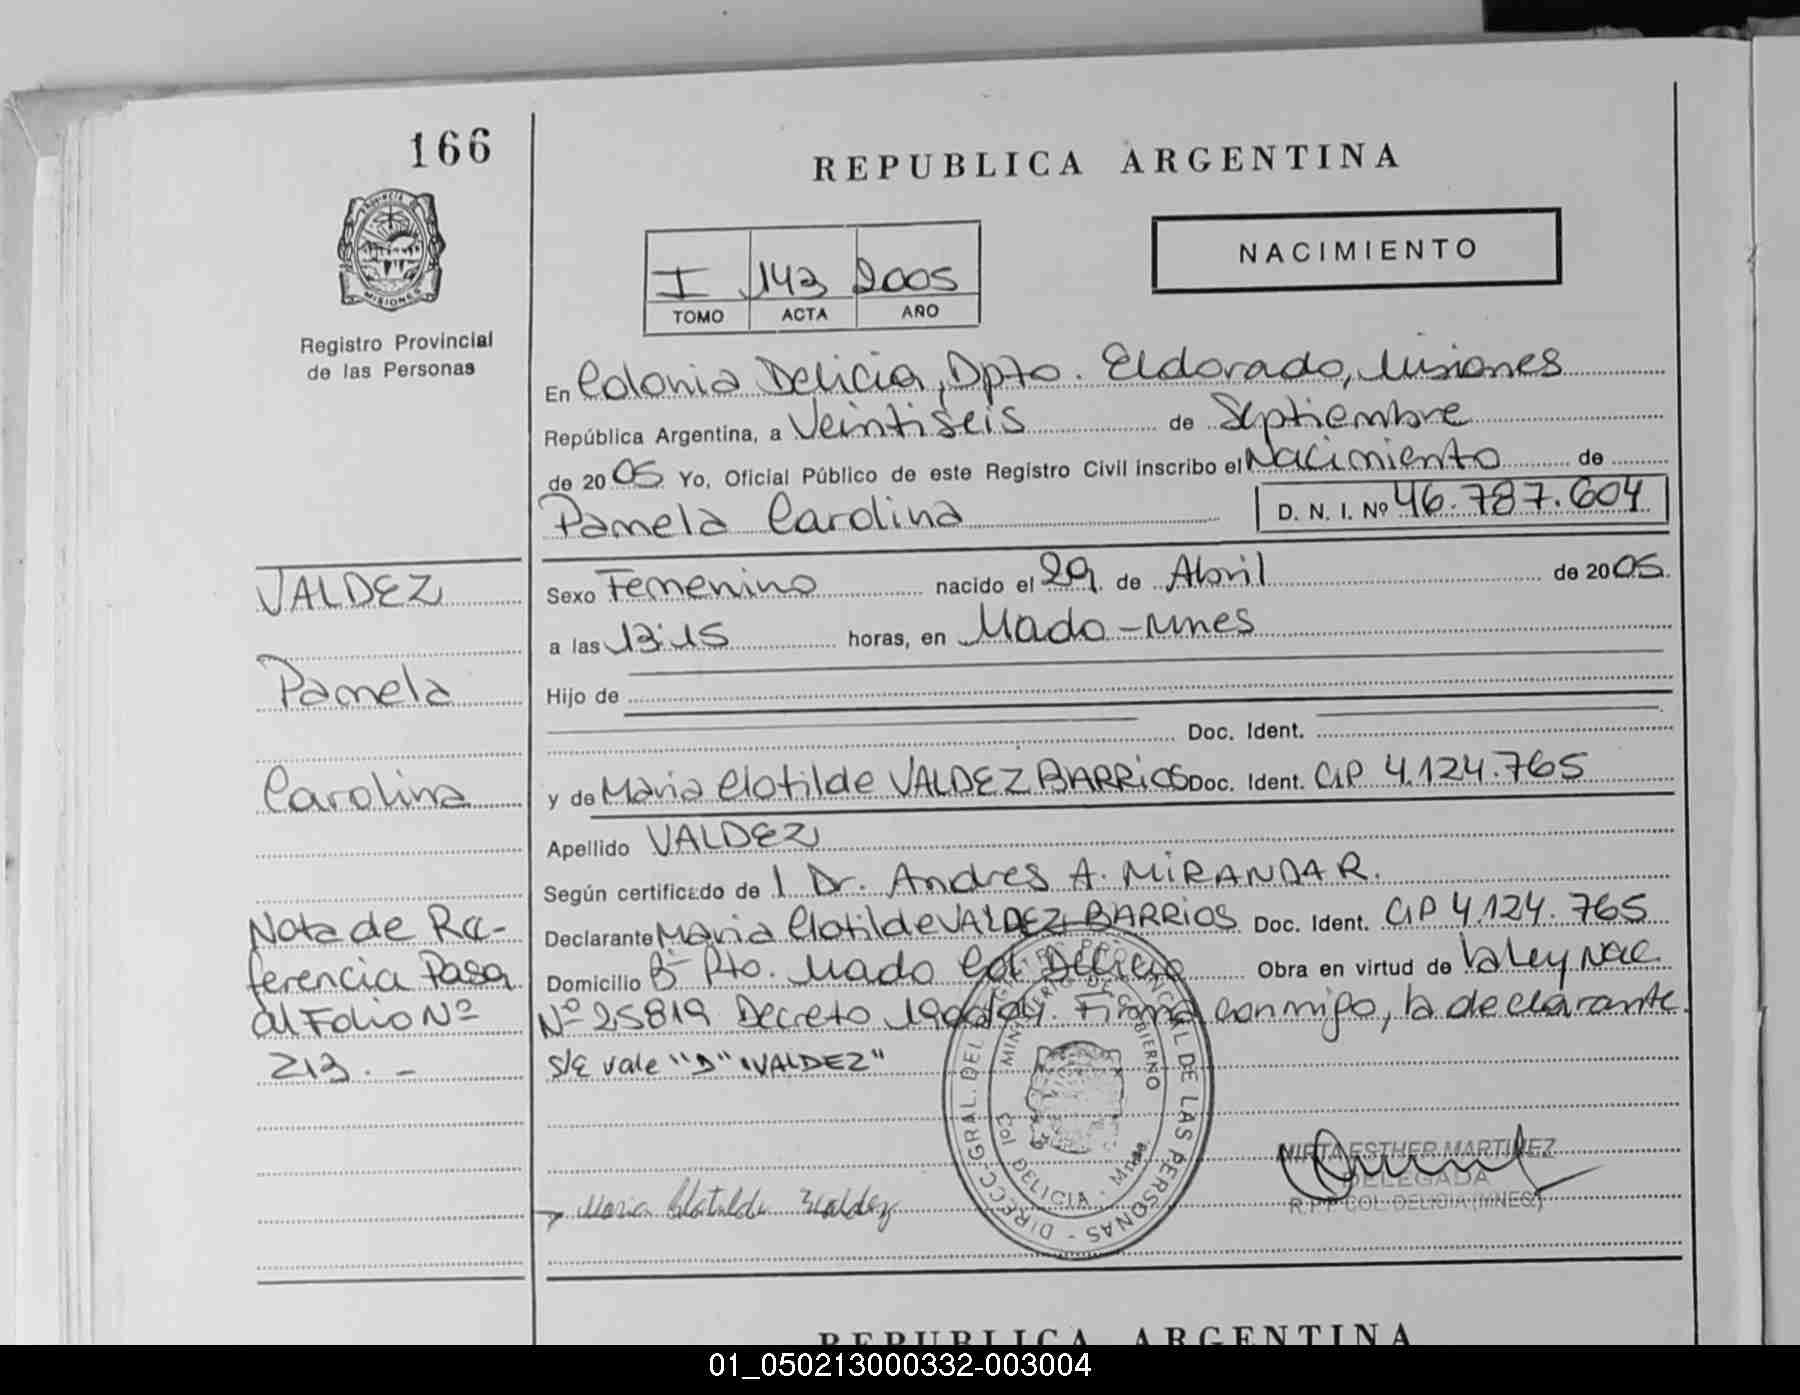 166
REPUBLICA ARGENTINA
PROVINCIA DE
MISIONES
Registro Provincial
de las Personas
I 143 2005
TOMO ACTA AÑO
NACIMIENTO
En Colonia Delicia, Dpto. Eldorado, Misiones
República Argentina, a Veintiseis de Septiembre
de 2005 Yo, Oficial Público de este Registro Civil inscribo el Nacimiento de
Pamela Carolina D. N. I. Nº 46.787.604
VALDEZ
Pamela
Carolina
Sexo Femenino nacido el 29 de Abril de 2005
a las 13:15 horas, en Mado-Mnes
Hijo de
Doc. Ident.
y de Maria Clotilde VALDEZ BARRIOS Doc. Ident. CIP 4.124.765
Apellido VALDEZ
Según certificado de l Dr. Andres A. MIRANDA R.
Declarante Maria Clotilde VALDEZ BARRIOS Doc. Ident. CIP 4.124.765
Domicilio Bº Pto. Mado Col Delicia Obra en virtud de la Ley Nac
Nº 25819 Decreto Firma conmigo, la declarante.
S/E vale "D" "VALDEZ"
Nota de Re-
ferencia Pasa
al Folio Nº
213.-
DIRECC. GRAL. DEL REGISTRO PROVINCIAL DE LAS PERSONAS
MINISTERIO DE GOBIERNO
Col. DELICIA - Mnes
Maria Clotilde Valdez
MIRTA ESTHER MARTINEZ
DELEGADA
R.P.P COL. DELICIA (MNES.)
REPUBLICA ARGENTINA
01_050213000332-003004